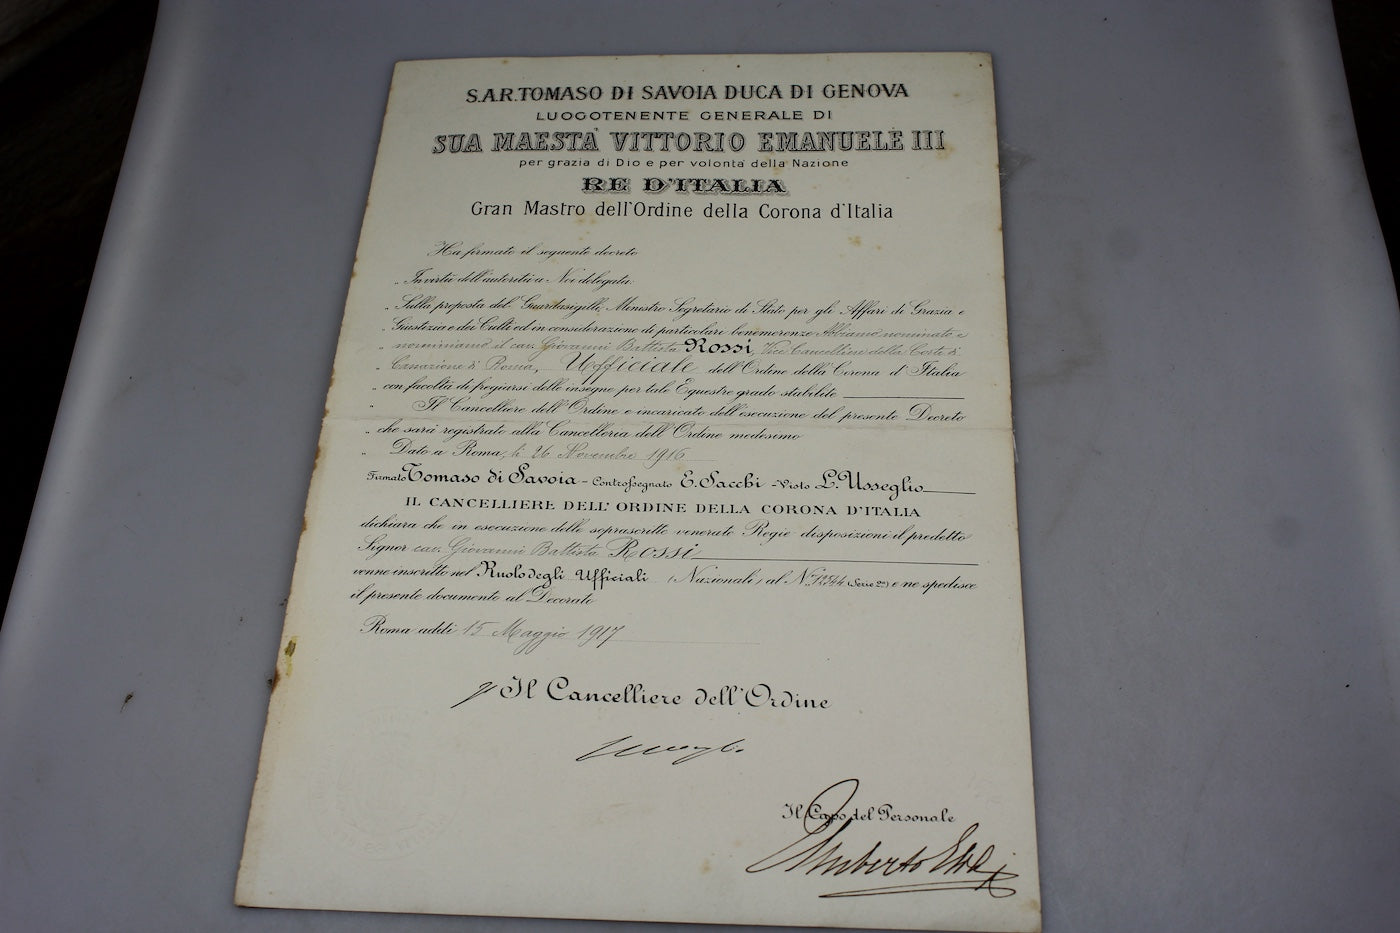 S.A.R. TOMASO DI SAVOIA DUCA DI GENOVA
LUOGOTENENTE GENERALE DI
SUA MAESTÀ VITTORIO EMANUELE III
per grazia di Dio e per volontà della Nazione
RE D'ITALIA
Gran Mastro dell'Ordine della Corona d'Italia
Ha firmato il seguente decreto
„ In virtù dell'autorità a Noi delegata:
„ Sulla proposta del Guardasigilli, Ministro Segretario di Stato per gli Affari di Grazia e
„ Giustizia e dei Culti ed in considerazione di particolari benemerenze Abbiamo nominato e
„ nominiamo il cav. Giovanni Battista Rossi, Vice Cancelliere della Corte di
„ Cassazione di Roma, Ufficiale dell'Ordine della Corona d'Italia
„ con facoltà di fregiarsi delle insegne per tale Equestre grado stabilite
„ Il Cancelliere dell'Ordine è incaricato dell'esecuzione del presente Decreto
„ che sarà registrato alla Cancelleria dell'Ordine medesimo
„ Dato a Roma, li 26 Novembre 1916
Firmato Tomaso di Savoia - Controssegnato E. Sacchi - Visto L. Usseglio
IL CANCELLIERE DELL'ORDINE DELLA CORONA D'ITALIA
dichiara che in esecuzione delle soprascritte venerate Regie disposizioni il predetto
Signor cav. Giovanni Battista Rossi
venne inscritto nel Ruolo degli Ufficiali (Nazionali) al N. (Serie 2a) e ne spedisce
il presente documento al Decorato
Roma addì 15 Maggio 1917
Il Cancelliere dell'Ordine
Il Capo del Personale
Umberto